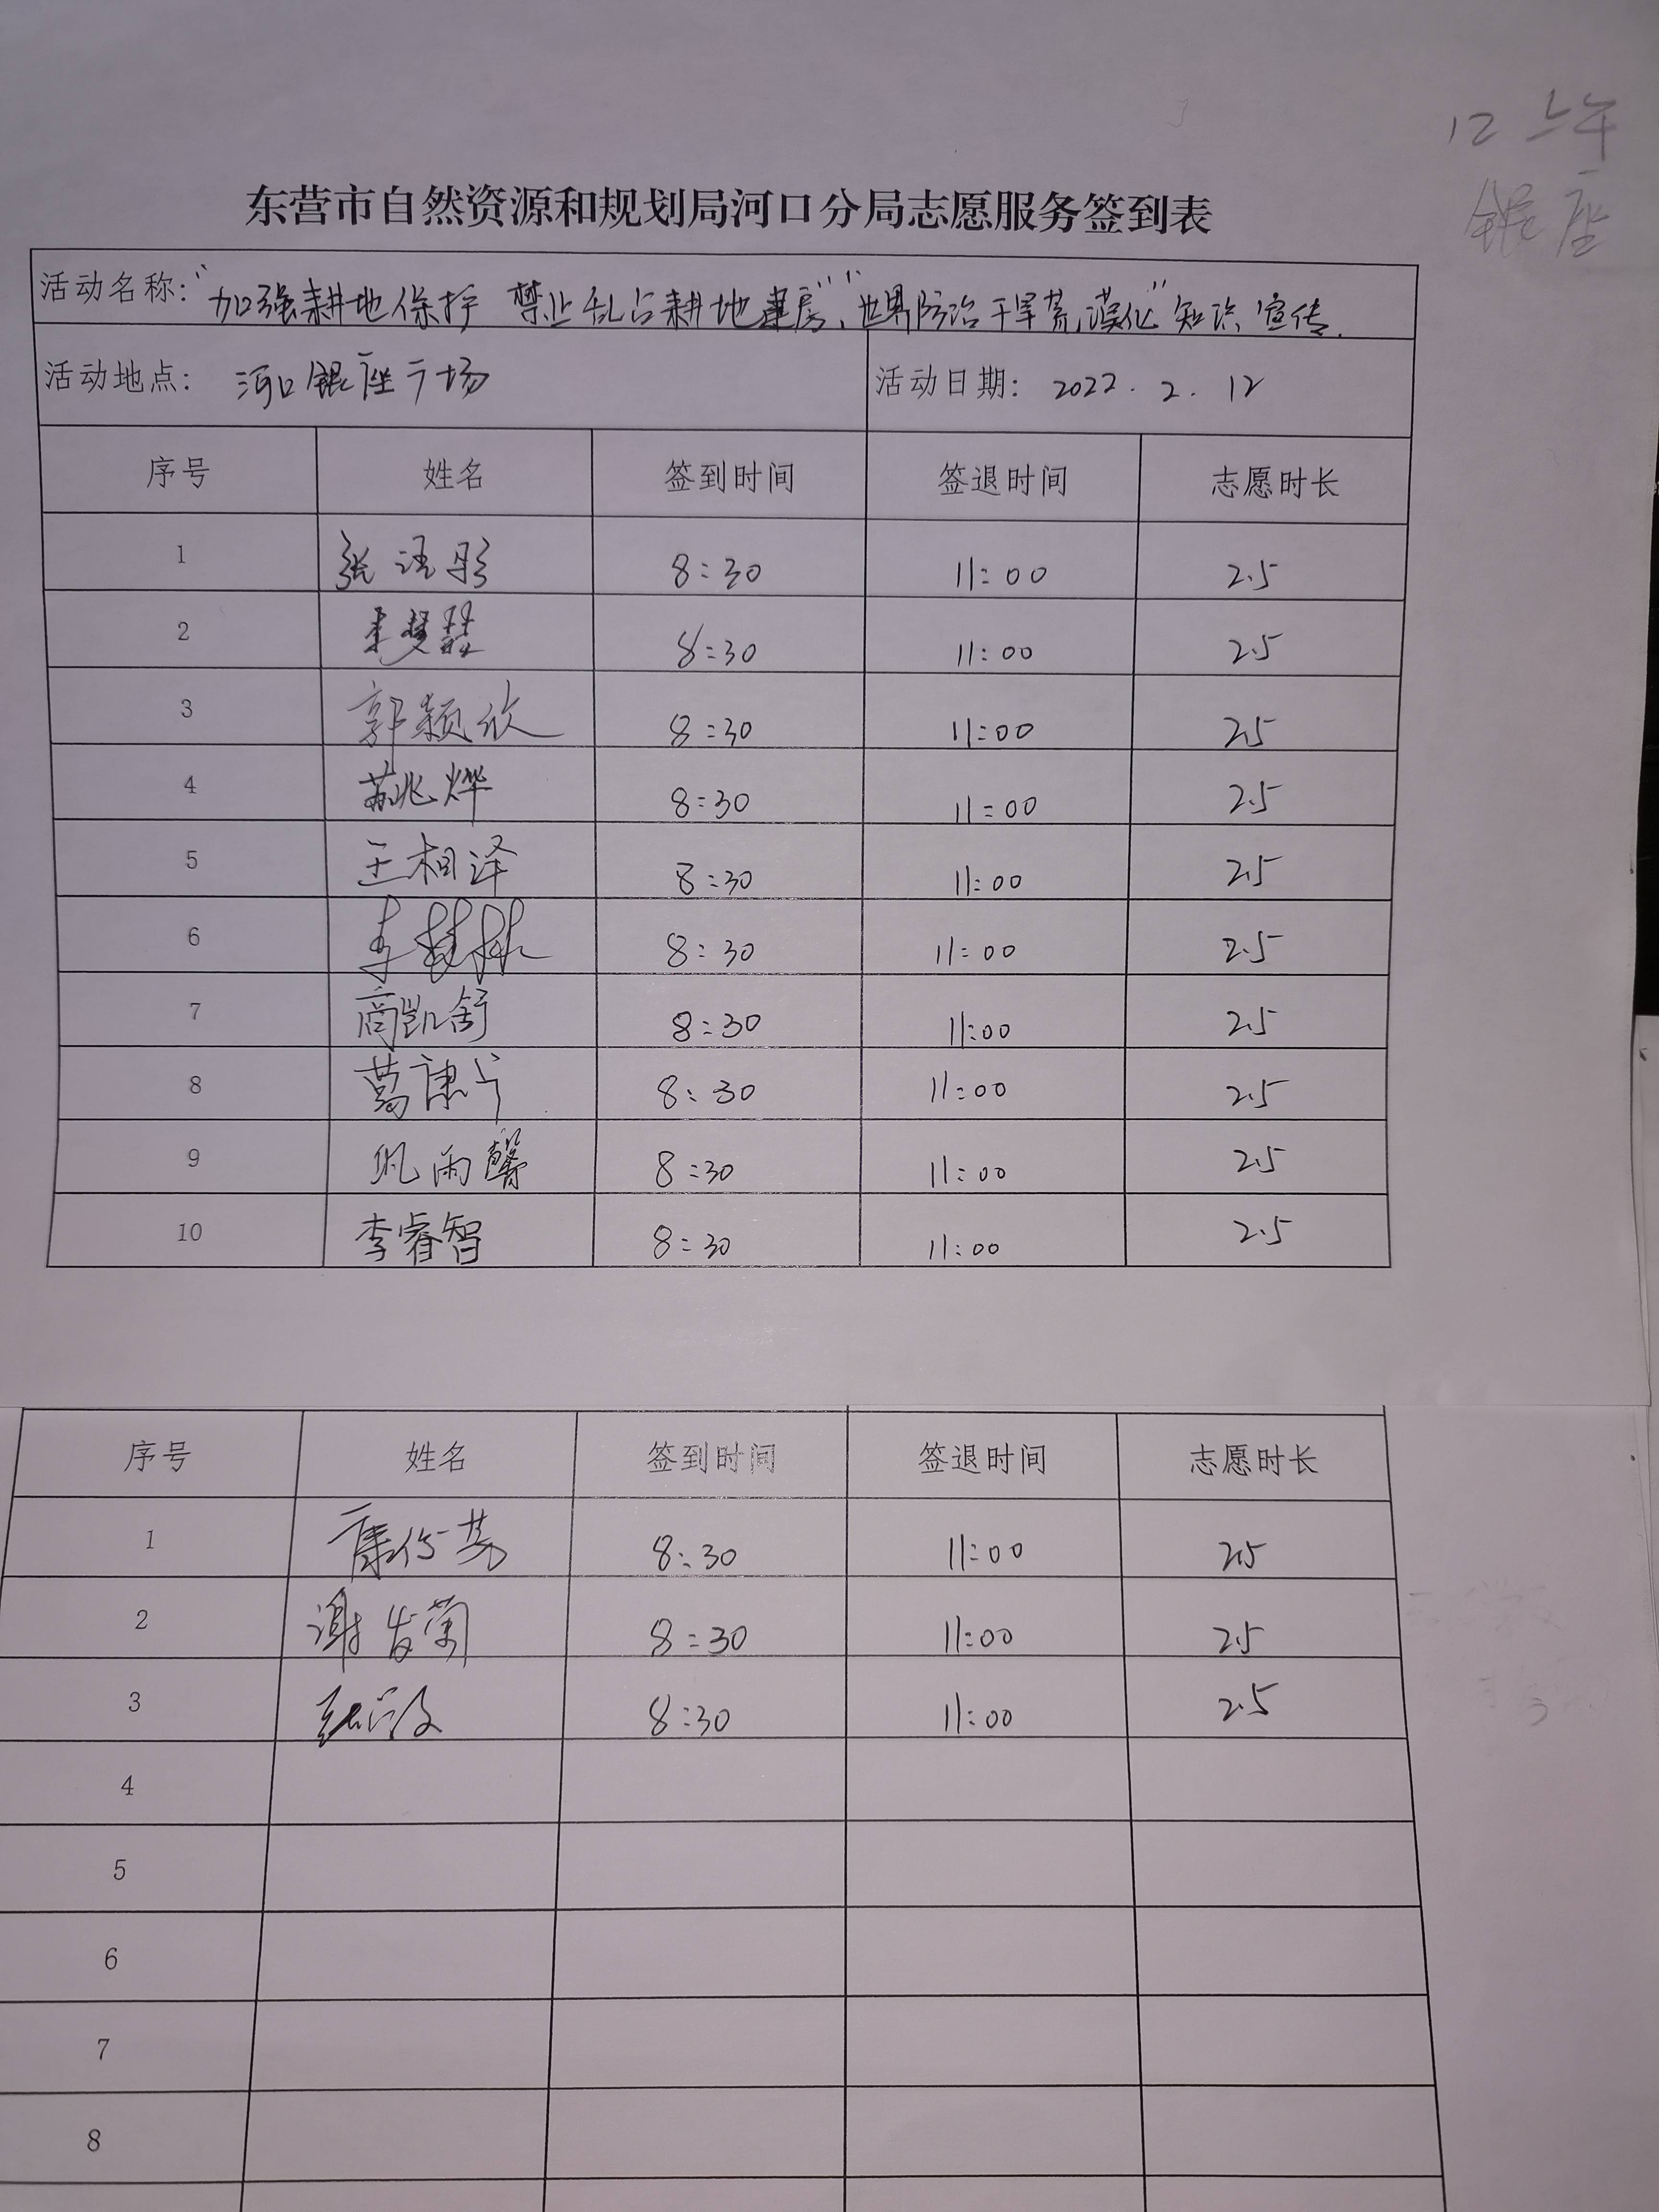 12 上午
银座
东营市自然资源和规划局河口分局志愿服务签到表
活动名称：“加强耕地保护 禁止乱占耕地建房”、“世界防治干旱荒漠化”知识宣传.
活动地点： 河口银座广场 活动日期： 2022.2.12
序号 姓名 签到时间 签退时间 志愿时长
1 张语彤 8:30 11:00 2.5
2 8:30 11:00 2.5
3 郭颖欣 8:30 11:00 2.5
4 苏兆烨 8:30 11:00 2.5
5 王相泽 8:30 11:00 2.5
6 李 8:30 11:00 2.5
7 商凯舒 8:30 11:00 2.5
8 葛康 8:30 11:00 2.5
9 巩雨馨 8:30 11:00 2.5
10 李睿智 8:30 11:00 2.5
序号 姓名 签到时间 签退时间 志愿时长
1 康 8:30 11:00 2.5
2 谢 8:30 11:00 2.5
3 8:30 11:00 2.5
4
5
6
7
8